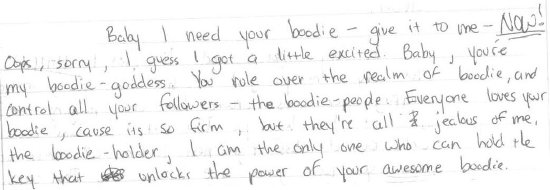 Baby I need your boodie - give it to me - Now!
Oops, sorry, I guess I got a little excited. Baby, you're
my boodie-goddess. You rule over the realm of boodie, and
control all your followers - the boodie-people. Everyone loves your
boodie, cause its so firm, but they're all jealous of me,
the boodie-holder, I am the only one who can hold the
key that unlocks the power of your awesome boodie.